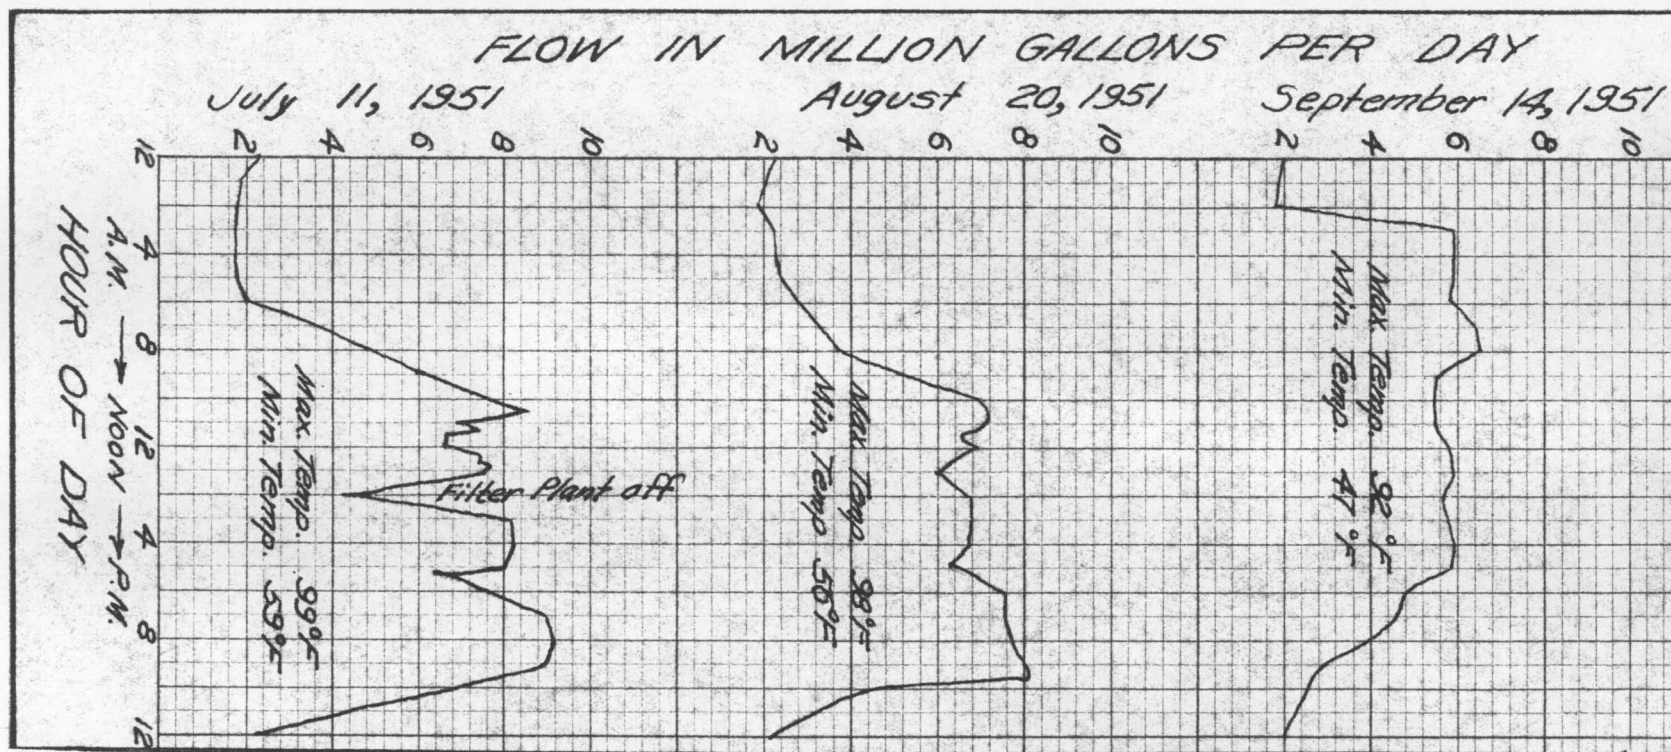 FLOW IN MILLION GALLONS PER DAY
July 11, 1951
August 20, 1951
September 14, 1951
2 4 6 8 10
2 4 6 8 10
2 4 6 8 10
HOUR OF DAY
A.M. → NOON → P.M.
12 4 8 12 4 8 12
Max. Temp. 99°F
Min. Temp. 59°F
Filter Plant off
Max. Temp. 98°F
Min. Temp 56°F
Max. Temp. 92 °F
Min. Temp. 47 °F